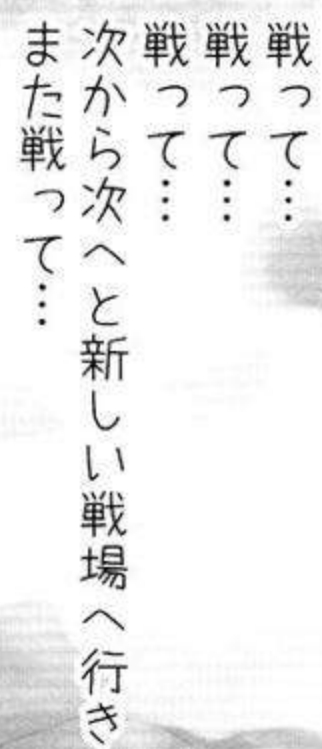 戦って…
戦って…
戦って…
次から次へと新しい戦場へ行き
また戦って…